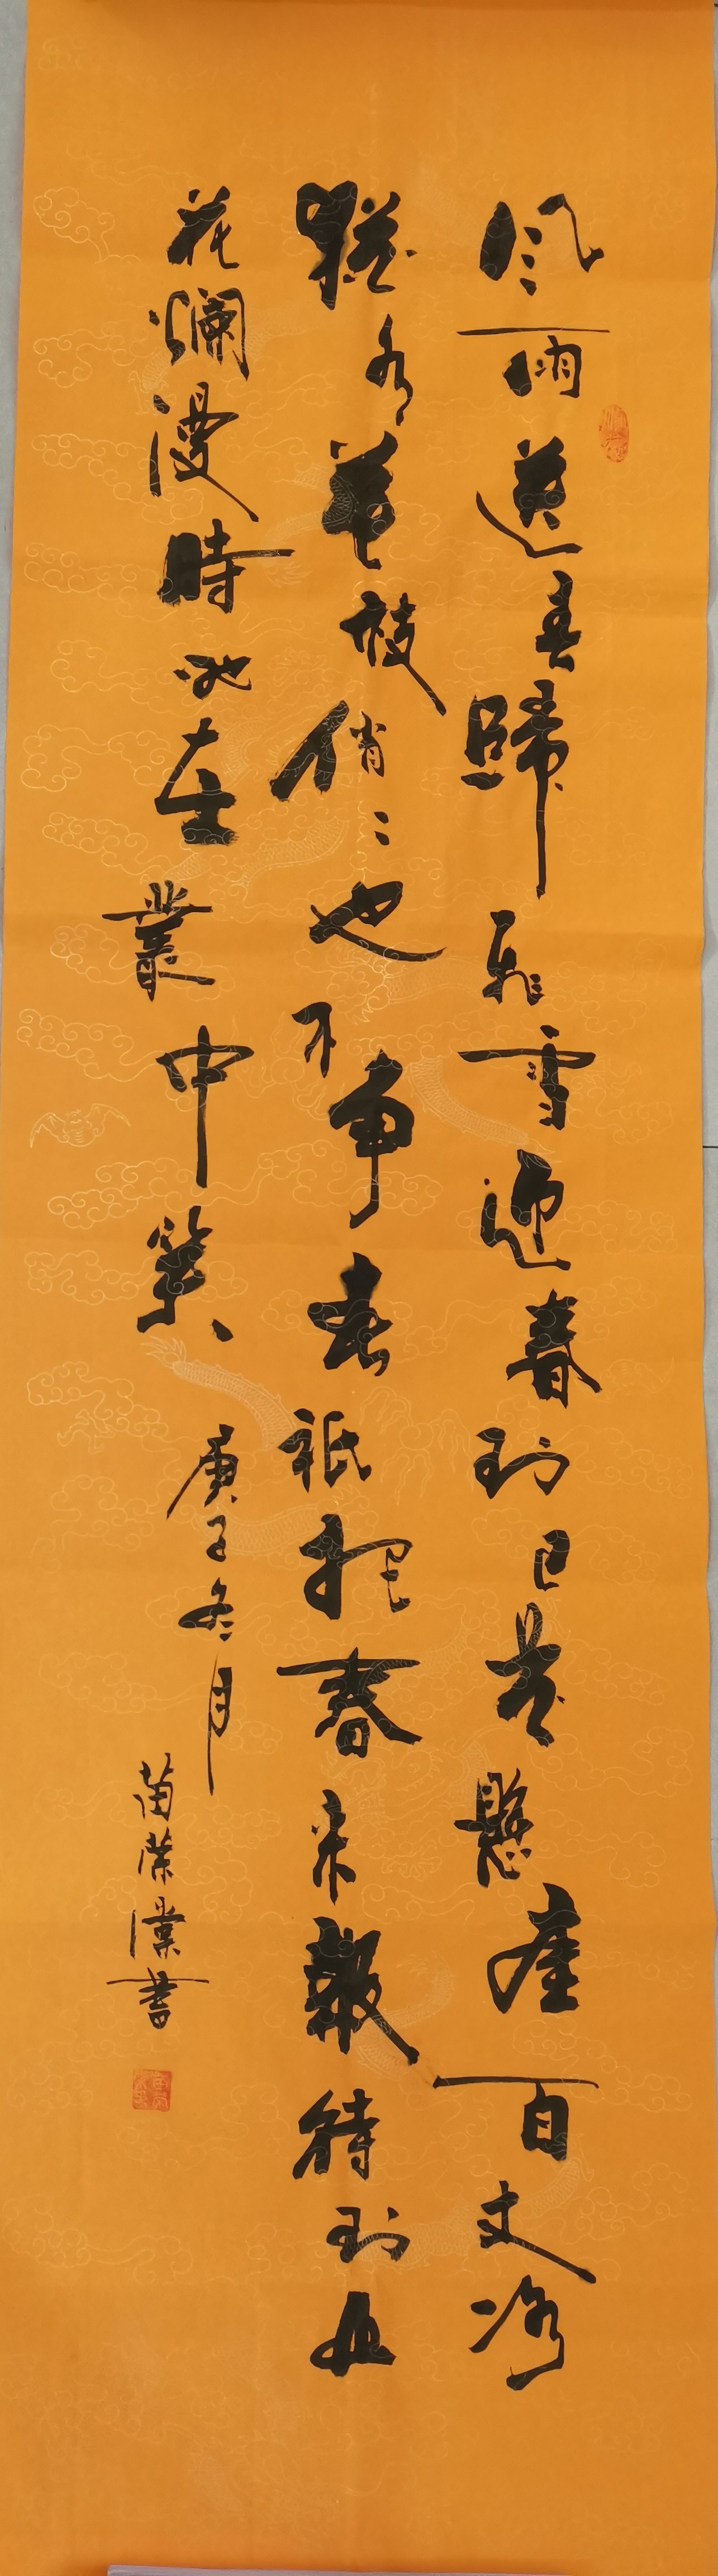 风雨送春歸飛雪迎春到已是懸崖百丈冰
猶有花枝俏〻也不争春祇把春来報待到山
花爛漫時她在叢中笑 庚子冬月
苗榮書